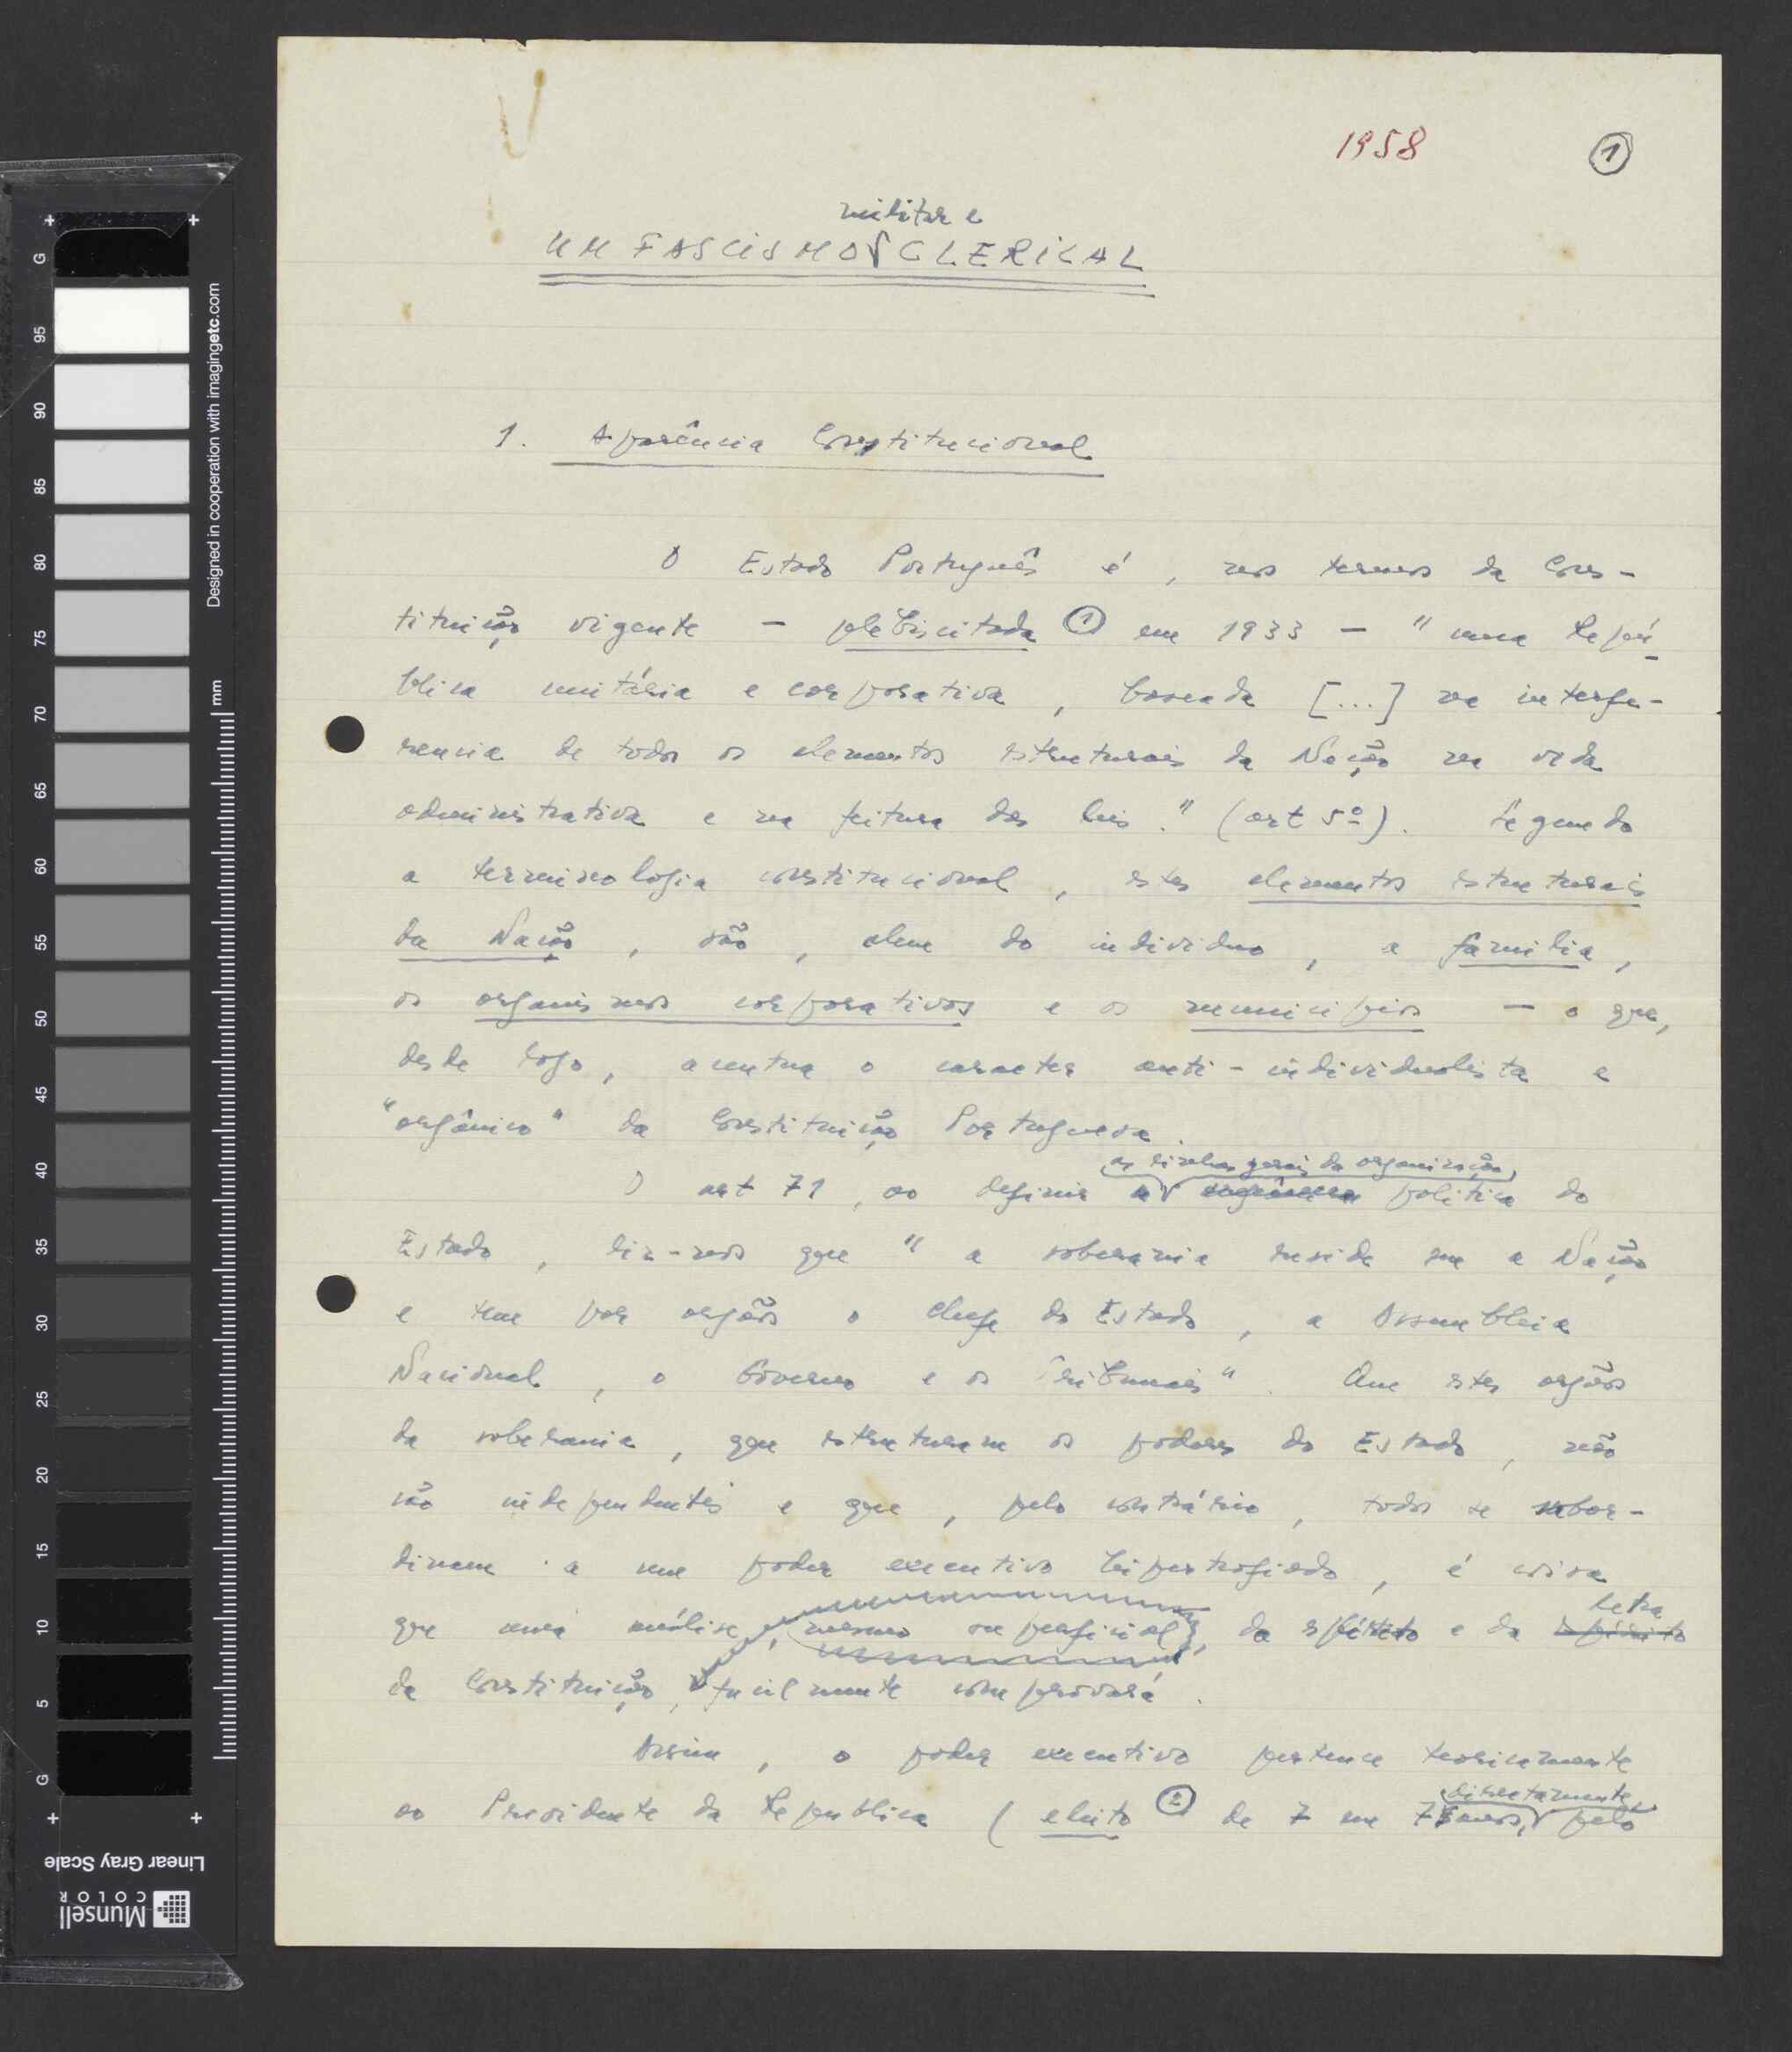 1958
1
militar e
UM FASCISMO CLERICAL
1. Aparência Constitucional
O Estado Português é, nos termos da Cons-
tituição vigente — plebiscitada ① em 1933 — "uma Repú-
blica unitária e corporativa, baseada [...] na interfe-
rencia de todos os elementos estruturais da Nação na vida
administrativa e na feitura das leis." (art 5º). Segundo
a terminologia constitucional, estes elementos estruturais
da Nação, são, alem do individuo, a familia,
os organismos corporativos e os municipios — o que,
desde logo, acentua o caracter anti-individualista e
"orgânico" da Constituição Portuguesa.
as linhas gerais da organização
O art 71, ao definir a politica do
Estado, diz-nos que "a soberania reside em a Nação
e tem por orgãos o chefe do Estado, a Assembleia
Nacional, o Governo e os Tribunais". Que estes orgãos
da soberania, que estruturam os poderes do Estado, não
são independentes e que, pelo contrário, todos se subor-
dinam a um poder executivo hipertrofiado, é coisa
letra
que uma análise, mesmo superficial, do espírito e da espírito
da Constituição, facilmente comprovará.
Assim, o poder executivo pertence teoricamente
directamente
ao Presidente da Republica (eleito ② de 7 em 7 anos, pelo
G 95 90 85 80 75 70 65 60 55 50 45 40 35 30 25 20 15 10 5 G
Designed in cooperation with imagingetc.com
mm
Linear Gray Scale
Munsell
COLOR